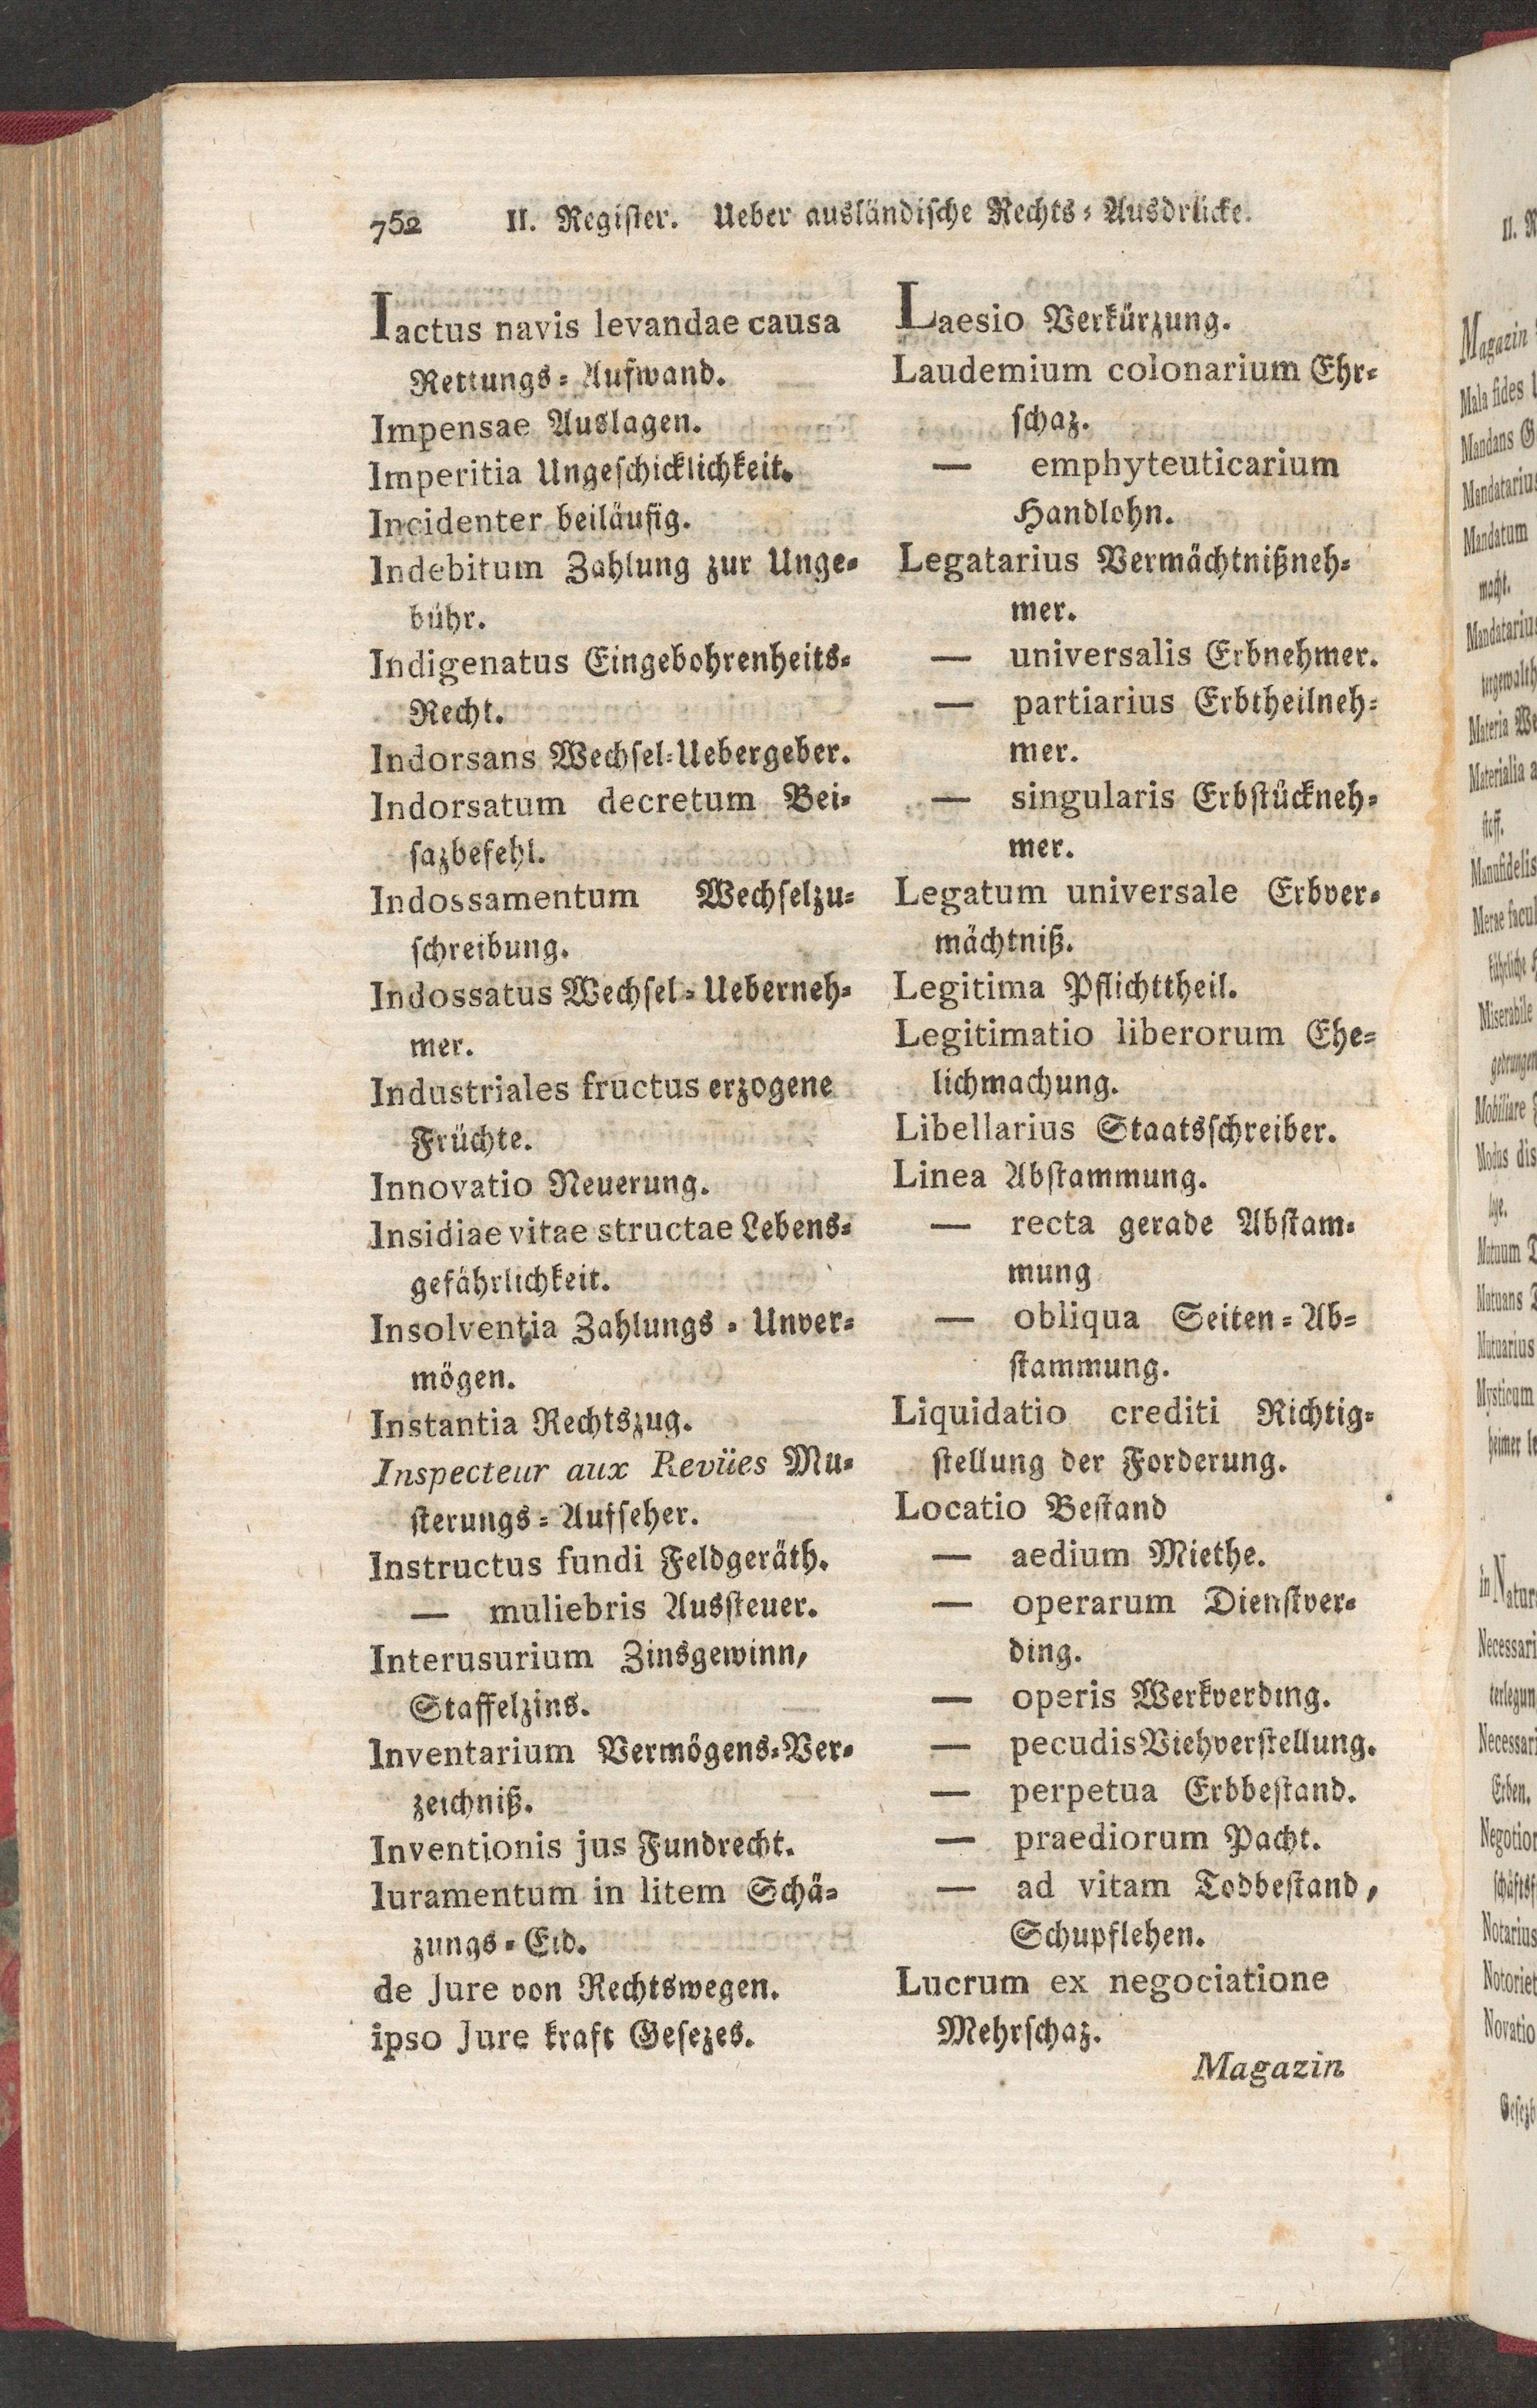 752 II. Register. Ueber ausländische Rechts-Ausdrücke.
Iactus navis levandae causa
Rettungs-Aufwand.
Impensae Auslagen.
Imperitia Ungeschicklichkeit.
Incidenter beiläufig.
Indebitum Zahlung zur Unge-
bühr.
Indigenatus Eingebohrenheits-
Recht.
Indorsans Wechsel-Uebergeber.
Indorsatum decretum Bei-
sazbefehl.
Indossamentum Wechselzu-
schreibung.
Indossatus Wechsel-Ueberneh-
mer.
Industriales fructus erzogene
Früchte.
Innovatio Neuerung.
Insidiae vitae structae Lebens-
gefährlichkeit.
Insolventia Zahlungs-Unver-
mögen.
Instantia Rechtszug.
Inspecteur aux Revües Mu-
sterungs-Aufseher.
Instructus fundi Feldgeräth.
— muliebris Aussteuer.
Interusurium Zinsgewinn,
Staffelzins.
Inventarium Vermögens-Ver-
zeichniß.
Inventionis jus Fundrecht.
Iuramentum in litem Schä-
zungs-Eid.
de Jure von Rechtswegen.
ipso Jure kraft Gesezes.
Laesio Verkürzung.
Laudemium colonarium Ehr-
schaz.
— emphyteuticarium
Handlohn.
Legatarius Vermächtnißneh-
mer.
— universalis Erbnehmer.
— partiarius Erbtheilneh-
mer.
— singularis Erbstückneh-
mer.
Legatum universale Erbver-
mächtniß.
Legitima Pflichttheil.
Legitimatio liberorum Ehe-
lichmachung.
Libellarius Staatsschreiber.
Linea Abstammung.
— recta gerade Abstam-
mung
— obliqua Seiten-Ab-
stammung.
Liquidatio crediti Richtig-
stellung der Forderung.
Locatio Bestand
— aedium Miethe.
— operarum Dienstver-
ding.
— operis Werkverding.
— pecudis Viehverstellung.
— perpetua Erbbestand.
— praediorum Pacht.
— ad vitam Todbestand,
Schupflehen.
Lucrum ex negociatione
Mehrschaz.
Magazin
II.
Magazin
Mala fides
Mandans
Mandatarius
Mandatum
macht.
Mandatarius
Materia
Materialia
stoff.
Manufidelis
Merae
Miserabile
Mobiliare
Modus
Mutuum
Mutuans
Mutuarius
Mysticum
in
Necessari
Necessari
Erben.
Negotior
Notarius
Notoriet
Novatio